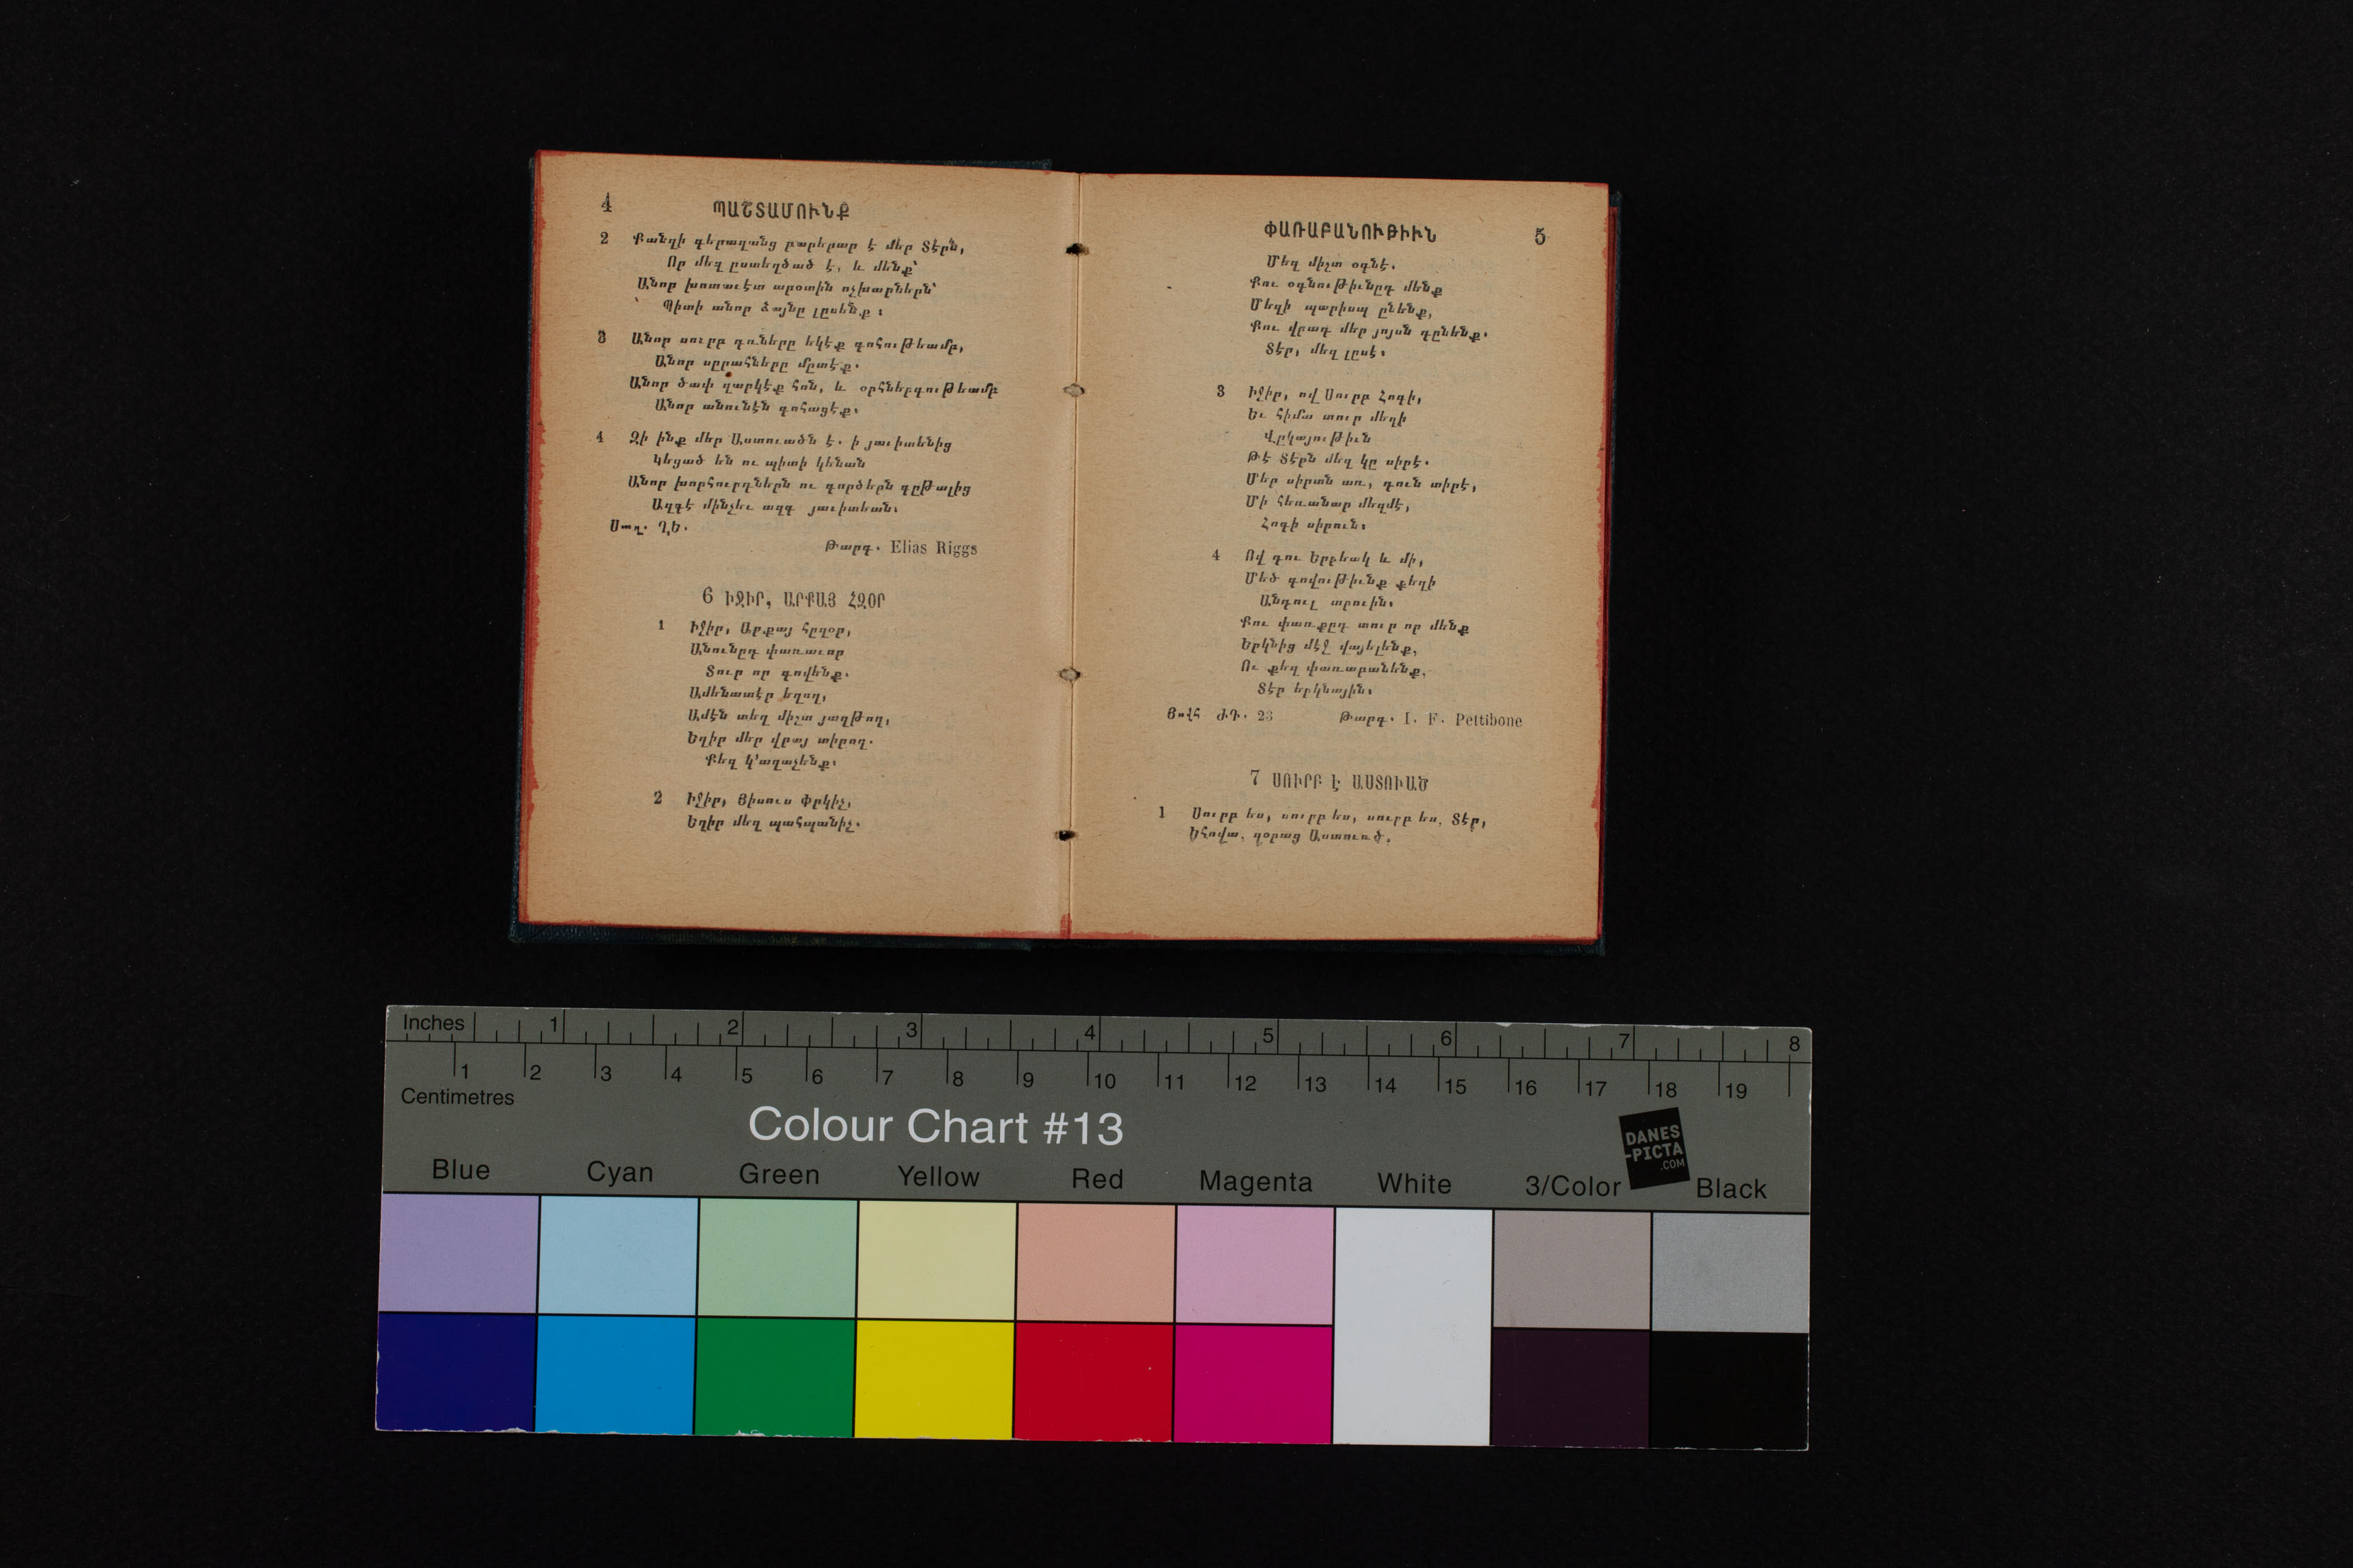 4 ՊԱՇՏԱՄՈՒՆՔ
2 Քանզի գերազանց բարերար է մեր Տէրն,
Որ մեզ ըստեղծած է, և մենք՝
Անոր խոտաւէտ արօտին ոչխարներն՝
Պիտի անոր ձայնը լըսենք։
3 Անոր սուրբ դռները եկէք գոհութեամբ,
Անոր սըրահները մըտէք.
Անոր ծափ զարկէք հոն, և օրհներգութեամբ
Անոր անունէն գոհացէք։
4 Զի ինք մեր Աստուածն է. ի յաւիտենից
Կեցած են ու պիտի կենան
Անոր խորհուրդներն ու գործերն գըթալից
Ազգէ մինչեւ ազգ յաւիտեան։
Սաղ. ՂԵ.
Թարգ. Elias Riggs
6 ԻՋԻՐ, ԱՐՔԱՅ ՀԶՕՐ
1 Իջիր, Արքայ հըզօր,
Անունըդ փառաւոր
Տուր որ գովենք.
Ամենատէր եղող,
Ամէն տեղ միշտ յաղթող,
Եղիր մեր վրայ տիրող.
Քեզ կ՚աղաչենք։
2 Իջիր, Յիսուս Փրկիչ,
Եղիր մեզ պահպանիչ.
ՓԱՌԱԲԱՆՈՒԹԻՒՆ 5
Մեզ միշտ օգնէ.
Քու օգնութիւնըդ մենք
Մեզի պարիսպ ընենք,
Քու վրադ մեր յոյսն դընենք.
Տէր, մեզ լըսէ։
3 Իջիր, ով Սուրբ Հոգի,
Եւ հիմա տուր մեզի
Վըկայութիւն
Թէ Տէրն մեզ կը սիրէ.
Մեր սիրտն առ, դուն տիրէ,
Մի հեռանար մեզմէ,
Հոգի սիրուն։
4 Ով դու Երրեակ և մի,
Մեծ գովութիւնք քեզի
Անդուլ տրուին։
Քու փառքըդ տուր որ մենք
Երկնից մէջ վայելենք,
Ու քեզ փառաբանենք,
Տէր երկնային։
Յովհ ԺԴ. 23 Թարգ. I. F. Pettibone
7 ՍՈՒՐԲ Է ԱՍՏՈՒԱԾ
1 Սուրբ ես, սուրբ ես, սուրբ ես, Տէր,
Եհովա, զօրաց Աստուած.
Inches 1 2 3 4 5 6 7 8
1 2 3 4 5 6 7 8 9 10 11 12 13 14 15 16 17 18 19
Centimetres
Colour Chart #13
DANES
-PICTA
.COM
Blue Cyan Green Yellow Red Magenta White 3/Color Black